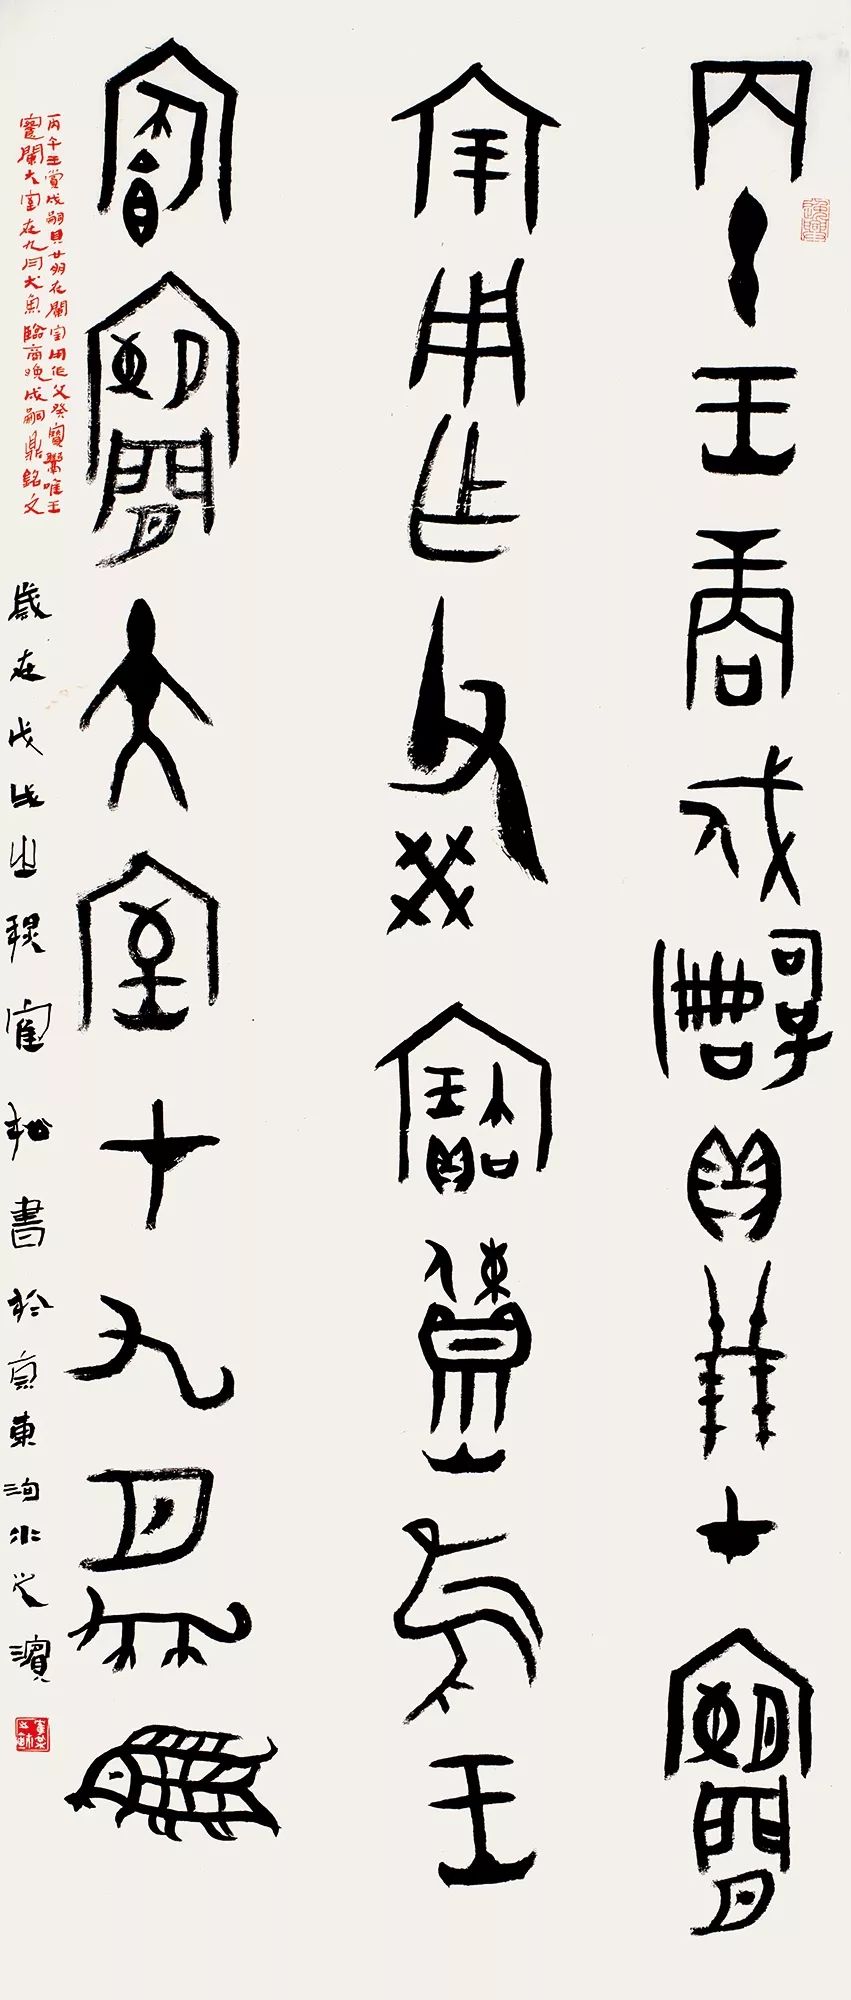 丙午王商戍嗣貝廿朋才闌
宗用乍父癸寶䵼隹王
闌大室才九月犬魚
丙午王賞戍嗣貝廿朋在闌宗用作父癸寶䵼唯王
闌大室在九月犬魚臨商晚戍嗣鼎銘文
歲在戊戌之秋松書於京東泃水之濱